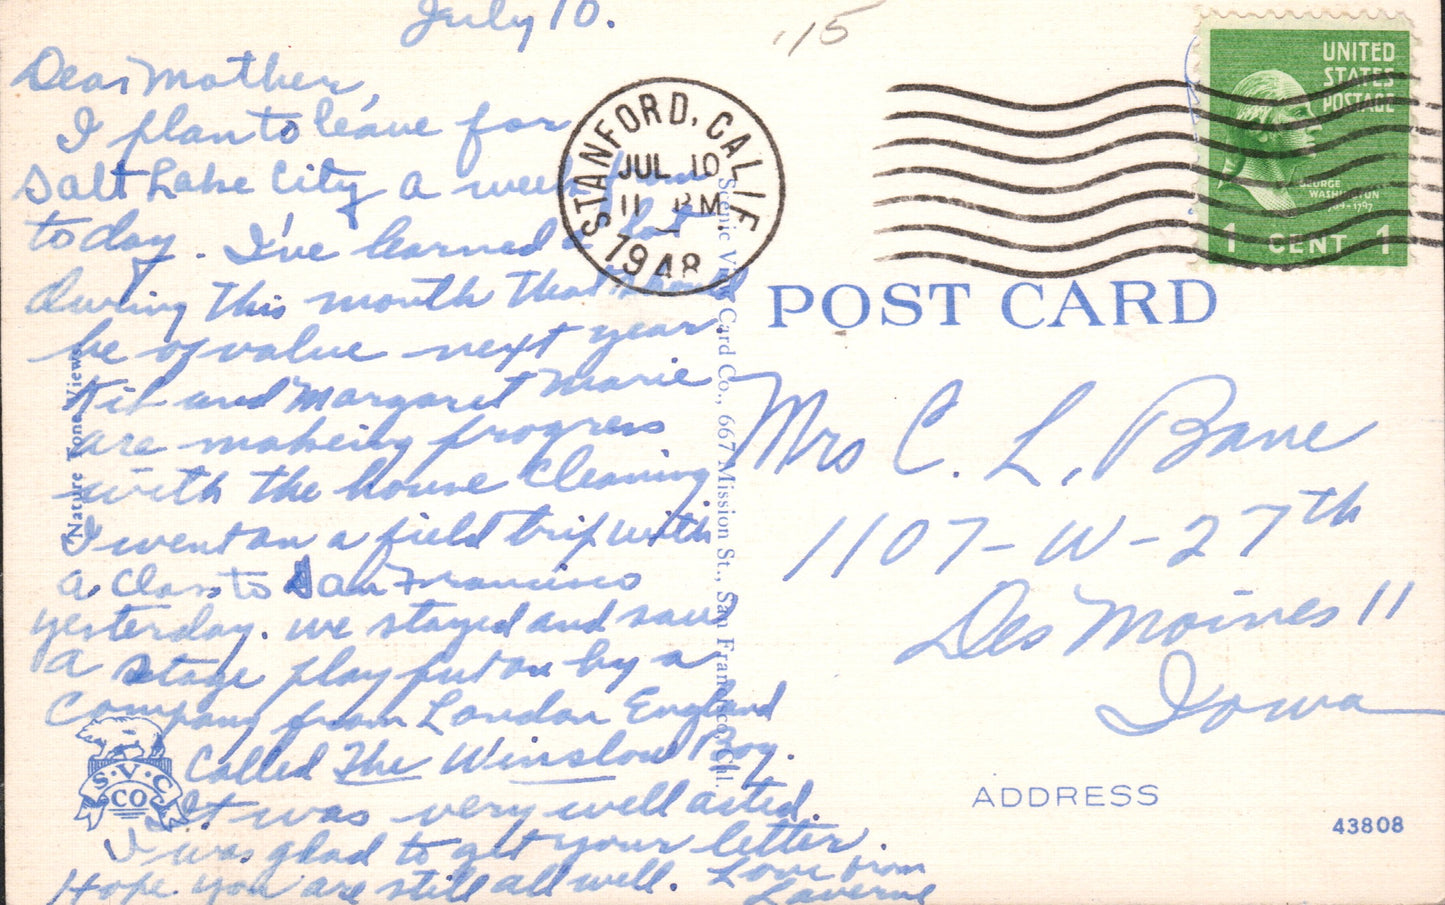 July 10.
Dear Mother,
I plan to leave for
Salt Lake City a week from
today. I've learned a lot
during this month that should
be of value next year.
and Margaret Marie
are making progress
with the house cleaning
I went on a field trip with
a class to San Francisco
yesterday. we stayed and saw
a stage play put on by a
Company from London England
Called The Winslow Boy.
It was very well acted.
I was glad to get your letter.
Hope you are still all well. Love from
Laverne
Nature Tone Views
S.V.C
CO
Scenic View Card Co., 667 Mission St., San Francisco, Cal.
15
STANFORD, CALIF
JUL 10
11 PM
1948
UNITED
STATES
POSTAGE
GEORGE
WASHINGTON
1789-1797
1 CENT 1
POST CARD
Mrs C. L. Bane
1107-W-27th
Des Moines 11
Iowa
ADDRESS
43808